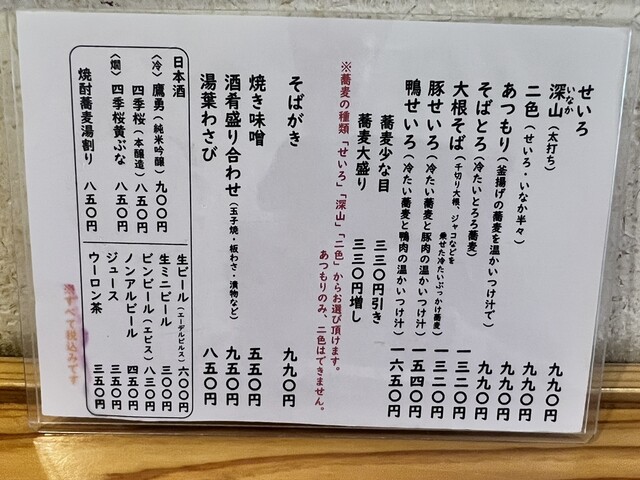 せいろ 九九〇円
深山（太打ち） 九九〇円
いなか
二色（せいろ・いなか半々） 九九〇円
あつもり（釜揚げの蕎麦を温かいつけ汁で） 九九〇円
そばとろ（冷たいとろろ蕎麦） 九九〇円
大根そば（千切り大根、ジャコなどを 一三二〇円
乗せた冷たいぶっかけ蕎麦）
豚せいろ（冷たい蕎麦と豚肉の温かいつけ汁） 一五四〇円
鴨せいろ（冷たい蕎麦と鴨肉の温かいつけ汁） 一六五〇円
蕎麦少な目 三三〇円引き
蕎麦大盛り 三三〇円増し
※蕎麦の種類「せいろ」「深山」「二色」からお選び頂けます。
あつもりのみ、二色はできません。
そばがき 九九〇円
焼き味噌 五五〇円
酒肴盛り合わせ（玉子焼・板わさ・漬物など） 九五〇円
湯葉わさび 八五〇円
日本酒
（冷）鷹勇（純米吟醸） 九〇〇円
四季桜（本醸造） 八五〇円
（燗）四季桜黄ぶな 八五〇円
焼酎蕎麦湯割り 八五〇円
生ビール（エーデルピルス） 六〇〇円
生ミニビール 三〇〇円
ビンビール（エビス） 八三〇円
ノンアルビール 四五〇円
ジュース 三五〇円
ウーロン茶 三五〇円
すべて税込みです